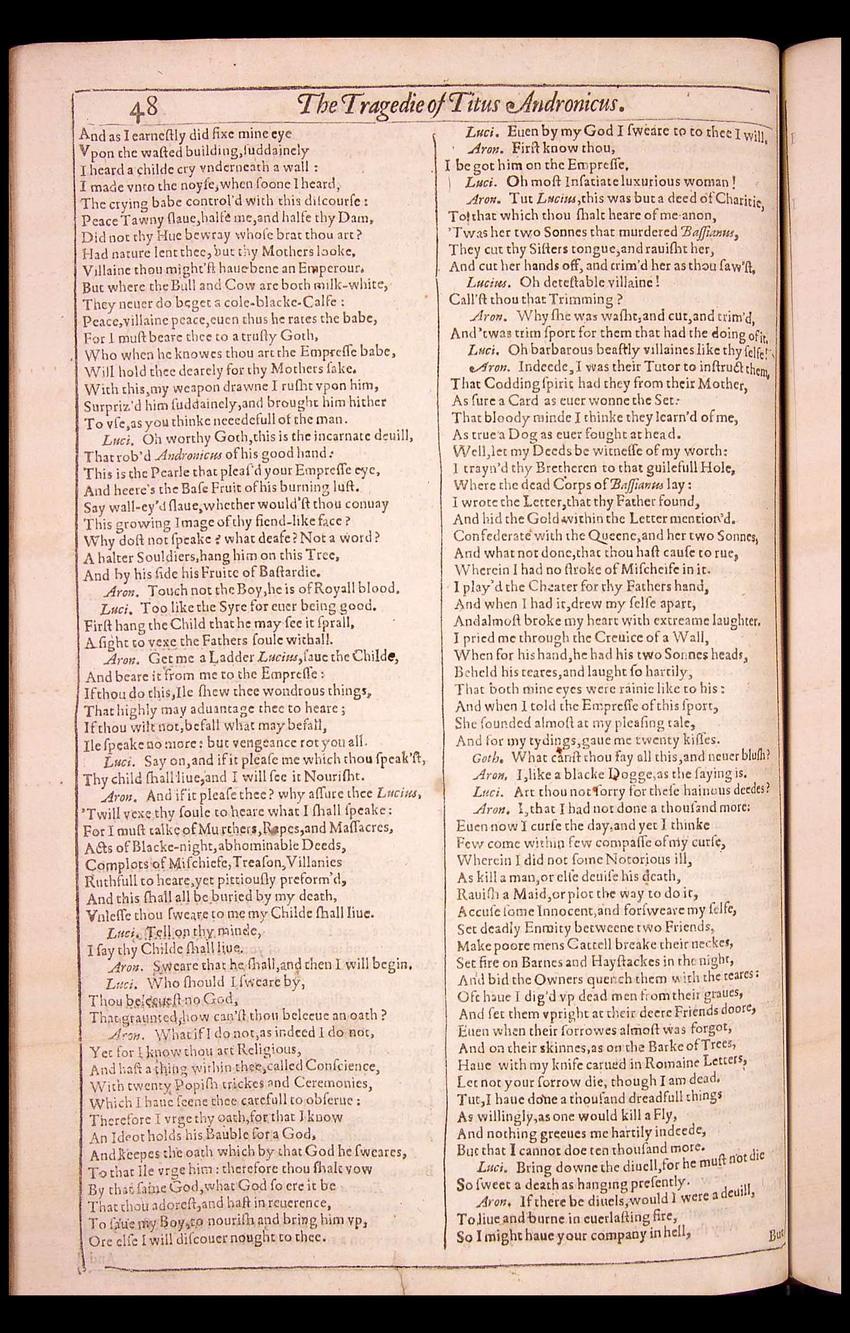 48
The Tragedie of Titus Andronicus.
And as I earneſtly did fixe mine eye
Vpon the waſted building, ſuddainely
I heard a childe cry vnderneath a wall :
I made vnto the noyſe, when ſoone I heard,
The crying babe control'd with this diſcourſe :
Peace Tawny ſlaue, halfe me, and halfe thy Dam,
Did not thy Hue bewray whoſe brat thou art?
Had nature lent thee, but thy Mothers looke,
Villaine thou might'ſt haue bene an Emperour.
But where the Bull and Cow are both milk-white,
They neuer do beget a cole-blacke-Calfe :
Peace, villaine peace, euen thus he rates the babe,
For I muſt beare thee to a truſty Goth,
Who when he knowes thou art the Empreſſe babe,
Will hold thee dearely for thy Mothers ſake.
With this, my weapon drawne I ruſht vpon him,
Surpriz'd him ſuddainely, and brought him hither
To vſe, as you thinke neeedefull of the man.
Luci. Oh worthy Goth, this is the incarnate deuill,
That rob'd Andronicus of his good hand:
This is the Pearle that pleaſ'd your Empreſſe eye,
And heere's the Baſe Fruit of his burning luſt.
Say wall-ey'd ſlaue, whether would'ſt thou conuay
This growing Image of thy fiend-like face?
Why doſt not ſpeake? what deafe? Not a word?
A halter Souldiers, hang him on this Tree,
And by his ſide his Fruite of Baſtardie.
Aron. Touch not the Boy, he is of Royall blood.
Luci. Too like the Syre for euer being good.
Firſt hang the Child that he may ſee it ſprall,
A ſight to vexe the Fathers ſoule withall.
Aron. Get me a Ladder Lucius, ſaue the Childe,
And beare it from me to the Empreſſe :
If thou do this, Ile ſhew thee wondrous things,
That highly may aduantage thee to heare ;
If thou wilt not, befall what may befall,
Ile ſpeake no more : but vengeance rot you all.
Luci. Say on, and if it pleaſe me which thou ſpeak'ſt,
Thy child ſhall liue, and I will ſee it Nouriſht.
Aron. And if it pleaſe thee? why aſſure thee Lucius,
'Twill vexe thy ſoule to heare what I ſhall ſpeake :
For I muſt talke of Murthers, Rapes, and Maſſacres,
Acts of Blacke-night, abhominable Deeds,
Complots of Miſchiefe, Treaſon, Villanies
Ruthfull to heare, yet pittiouſly preform'd,
And this ſhall all be buried by my death,
Vnleſſe thou ſweare to me my Childe ſhall liue.
Luci. Tell on thy minde,
I ſay thy Childe ſhall liue.
Aron. Sweare that he ſhall, and then I will begin.
Luci. Who ſhould I ſweare by,
Thou beleeueſt no God,
That graunted, how can'ſt thou beleeue an oath?
Aron. What if I do not, as indeed I do not,
Yet for I know thou art Religious,
And haſt a thing within thee, called Conſcience,
With twenty Popiſh trickes and Ceremonies,
Which I haue ſeene thee carefull to obſerue :
Therefore I vrge thy oath, for that I know
An Ideot holds his Bauble for a God,
And keepes the oath which by that God he ſweares,
To that Ile vrge him : therefore thou ſhalt vow
By that ſame God, what God ſo ere it be
That thou adoreſt, and haſt in reuerence,
To ſaue my Boy, to nouriſh and bring him vp,
Ore elſe I will diſcouer nought to thee.
Luci. Euen by my God I ſweare to to thee I will,
Aron. Firſt know thou,
I begot him on the Empreſſe.
Luci. Oh moſt Inſatiate luxurious woman!
Aron. Tut Lucius, this was but a deed of Charitie,
To that which thou ſhalt heare of me anon,
'Twas her two Sonnes that murdered Baſſianus,
They cut thy Siſters tongue, and rauiſht her,
And cut her hands off, and trim'd her as thou ſaw'ſt.
Lucius. Oh deteſtable villaine!
Call'ſt thou that Trimming?
Aron. Why ſhe was waſht, and cut, and trim'd,
And 'twas trim ſport for them that had the doing of it.
Luci. Oh barbarous beaſtly villaines like thy ſelfe!
Aron. Indeede, I was their Tutor to inſtruct them,
That Codding ſpirit had they from their Mother,
As ſure a Card as euer wonne the Set:
That bloody minde I thinke they learn'd of me,
As true a Dog as euer fought at head.
Well, let my Deeds be witneſſe of my worth:
I trayn'd thy Bretheren to that guilefull Hole,
Where the dead Corps of Baſſianus lay :
I wrote the Letter, that thy Father found,
And hid the Gold within the Letter mention'd.
Confederate with the Queene, and her two Sonnes,
And what not done, that thou haſt cauſe to rue,
Wherein I had no ſtroke of Miſcheife in it.
I play'd the Cheater for thy Fathers hand,
And when I had it, drew my ſelfe apart,
And almoſt broke my heart with extreame laughter.
I pried me through the Creuice of a Wall,
When for his hand, he had his two Sonnes heads,
Beheld his teares, and laught ſo hartily,
That both mine eyes were rainie like to his :
And when I told the Empreſſe of this ſport,
She ſounded almoſt at my pleaſing tale,
And for my tydings, gaue me twenty kiſſes.
Goth. What canſt thou ſay all this, and neuer bluſh?
Aron. I, like a blacke Dogge, as the ſaying is.
Luci. Art thou not ſorry for theſe hainous deedes?
Aron. I, that I had not done a thouſand more:
Euen now I curſe the day, and yet I thinke
Few come within few compaſſe of my curſe,
Wherein I did not ſome Notorious ill,
As kill a man, or elſe deuiſe his death,
Rauiſh a Maid, or plot the way to do it,
Accuſe ſome Innocent, and forſweare my ſelfe,
Set deadly Enmity betweene two Friends,
Make poore mens Cattell breake their neckes,
Set fire on Barnes and Hayſtackes in the night,
And bid the Owners quench them with the teares :
Oft haue I dig'd vp dead men from their graues,
And ſet them vpright at their deere Friends doore,
Euen when their ſorrowes almoſt was forgot,
And on their skinnes, as on the Barke of Trees,
Haue with my knife carued in Romaine Letters,
Let not your ſorrow die, though I am dead.
Tut, I haue done a thouſand dreadfull things
As willingly, as one would kill a Fly,
And nothing greeues me hartily indeede,
But that I cannot doe ten thouſand more.
Luci. Bring downe the diuell, for he muſt not die
So ſweet a death as hanging preſently.
Aron. If there be diuels, would I were a deuill,
To liue and burne in euerlaſting fire,
So I might haue your company in hell,
But